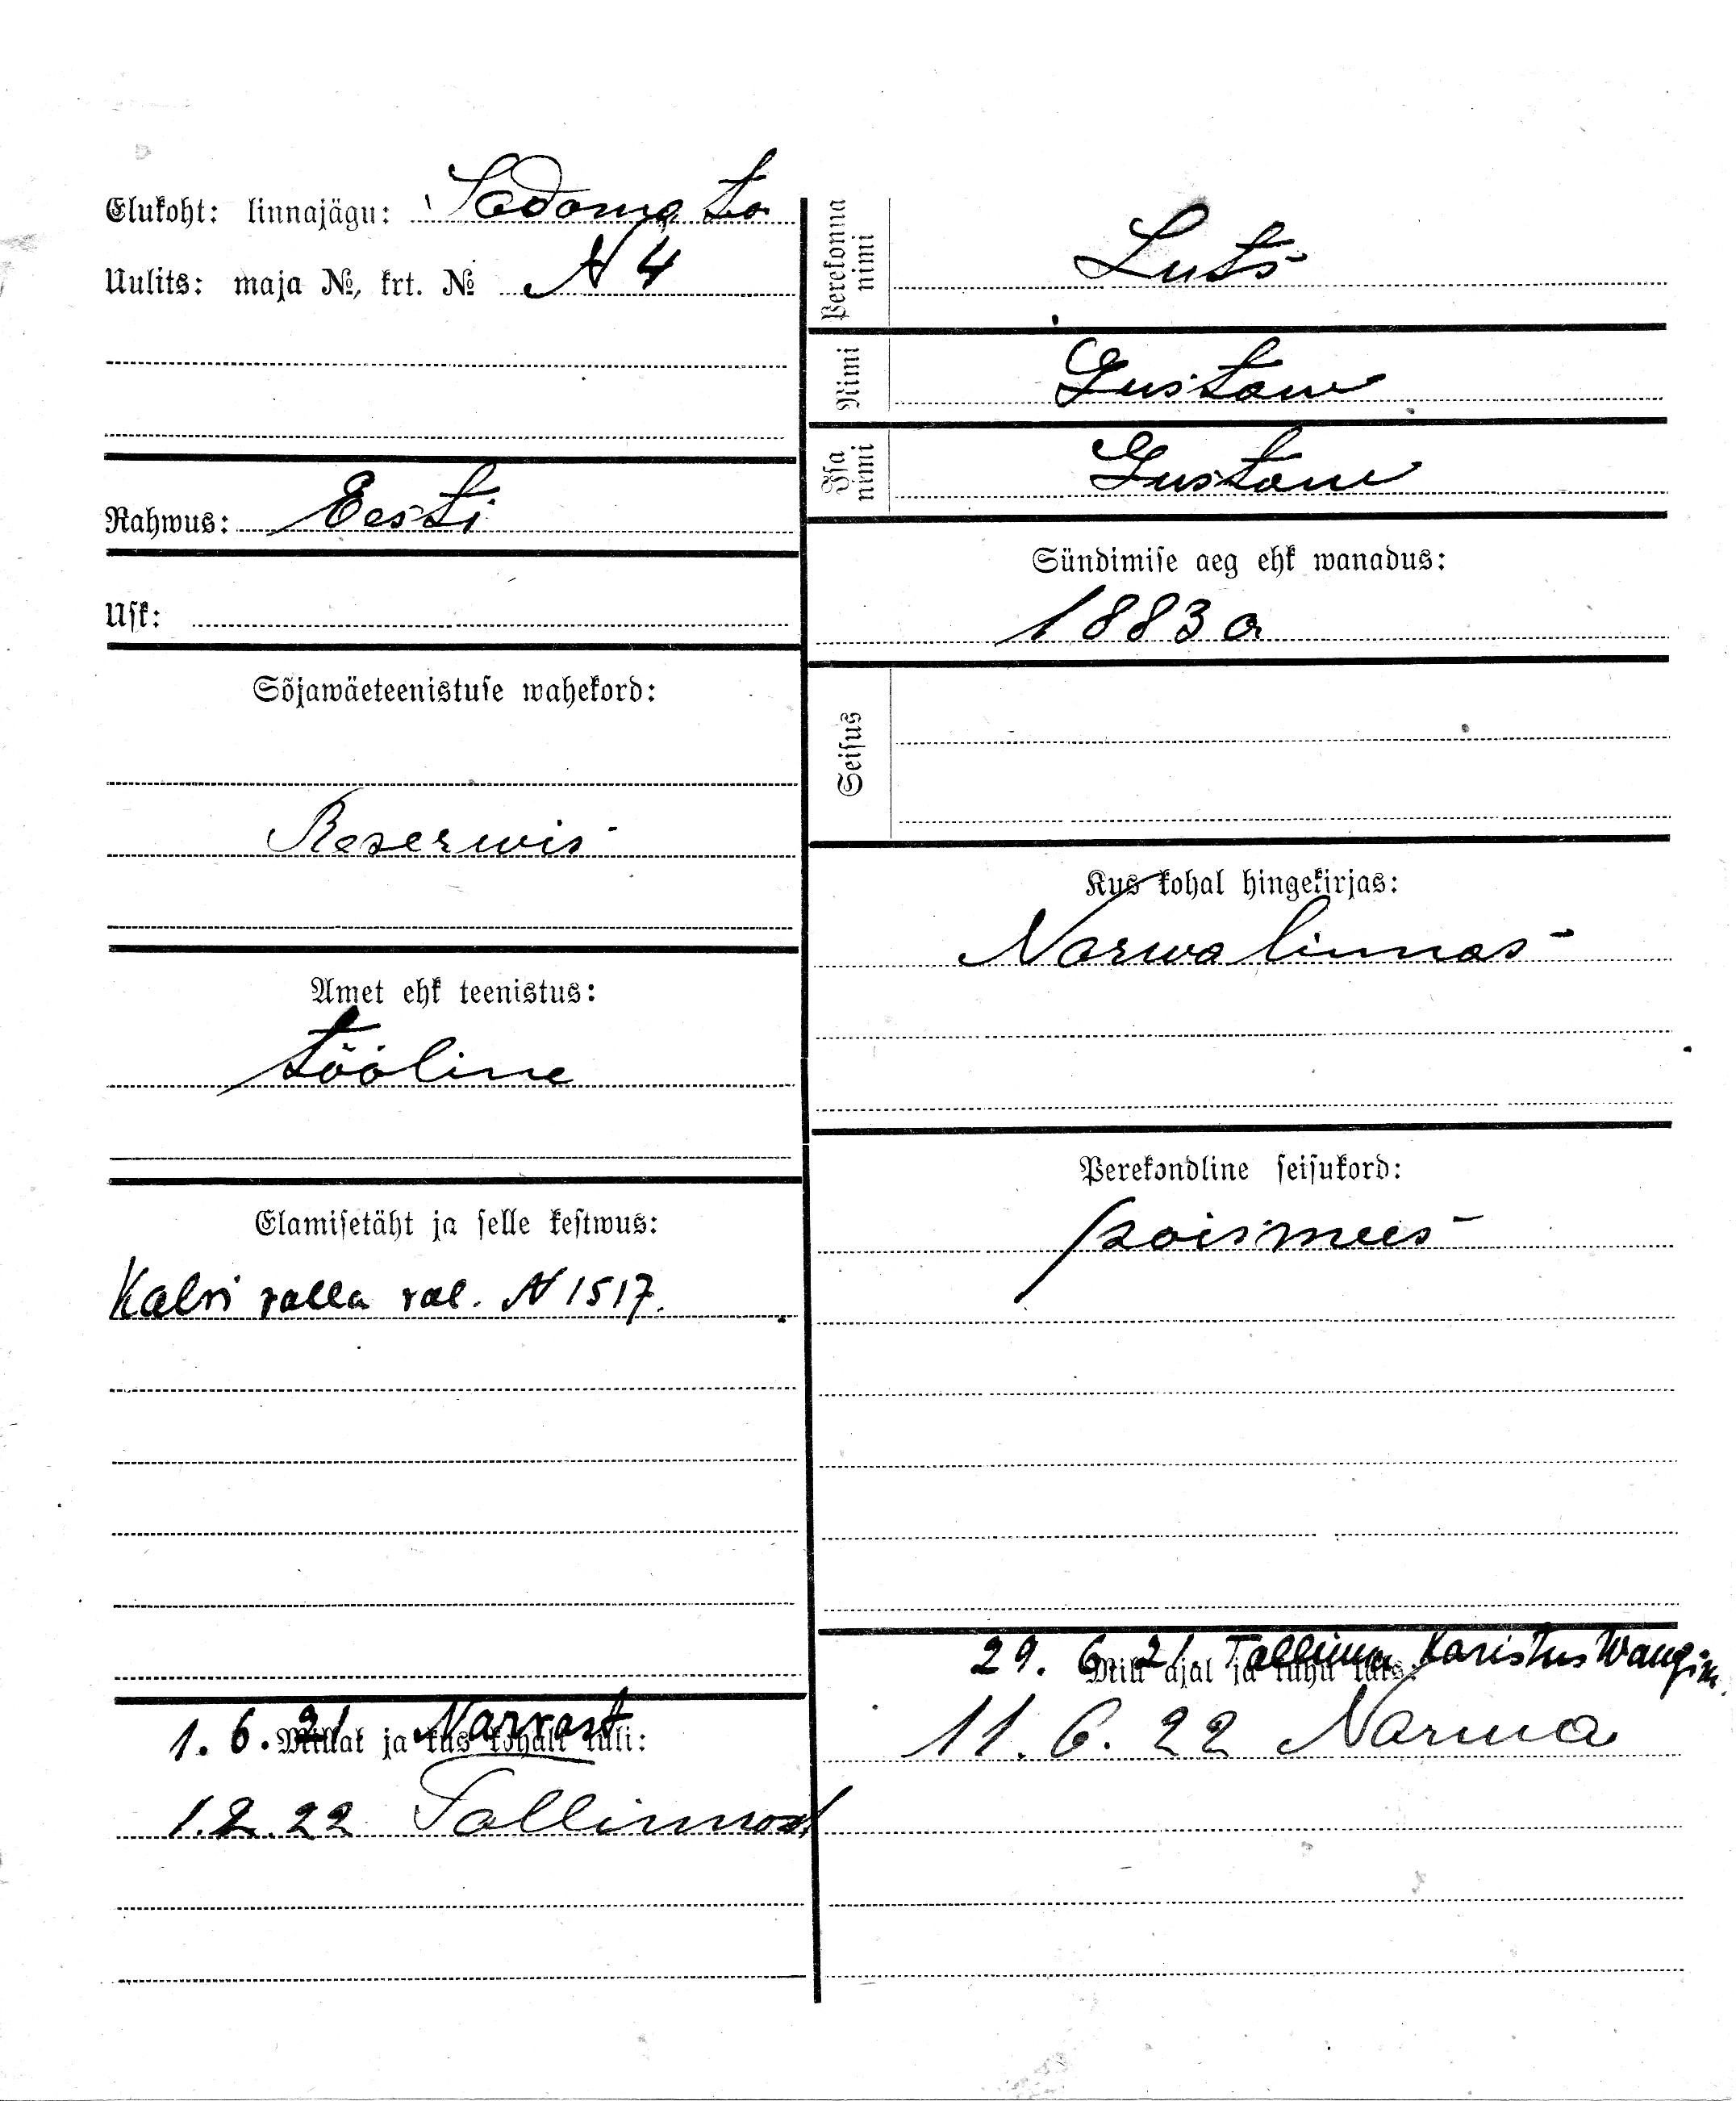 Elukoht: linnajägu: Sadama to
Uulits: maja №, krt. № N 4
Rahwus: Eesti
Usk:
Sõjawäeteenistuse wahekord:
Reserwis
Amet ehk teenistus:
tööline
Elamisetäht ja selle kestwus:
Kalvi valla val. N 1517.
1. 6. 21 Narvast
Millal ja kus kohalt tuli:
1.2.22 Tallinnast
Perekonna nimi
Luts
Nimi
Gustaw
Isa nimi
Gustaw
Sündimise aeg ehk wanadus:
1883 a
Seisus
Kus kohal hingekirjas:
Narwa linnas
Perekondline seisukord:
poismees
29. 6 21 Tallinna Karistus Wangim.
Mill ajal ja kuhu läks:
11. 6. 22 Narwa